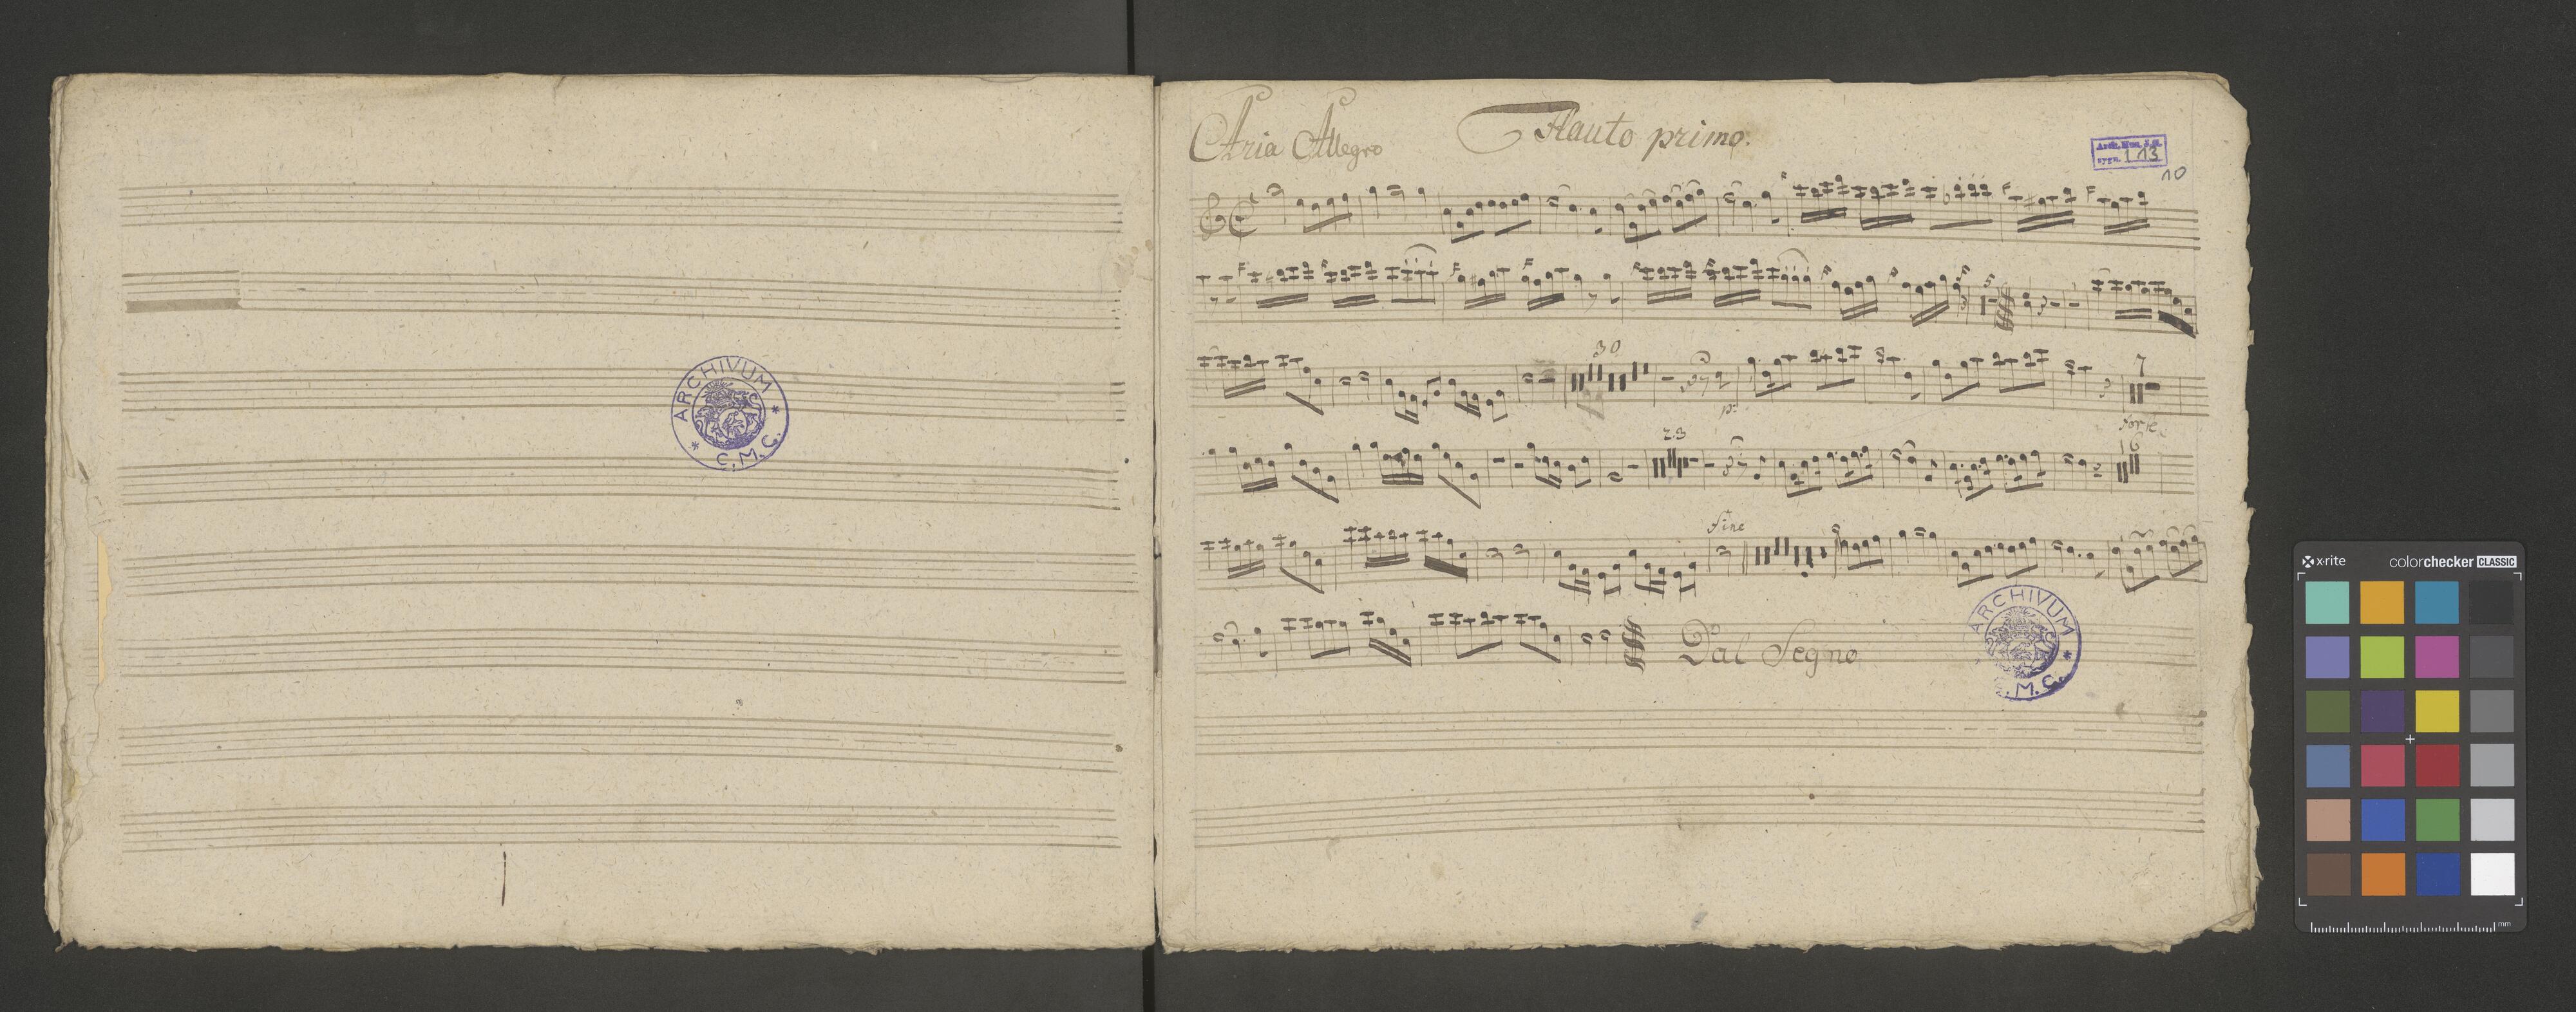 ARCHIVUM
C. M. C.
Aria Allegro
Flauto primo.
sygn. I 13
10
5
30
p:
7
forte
23
16
fine
Dal Segno
ARCHIVUM
C. M. C.
x·rite
colorchecker CLASSIC
mm